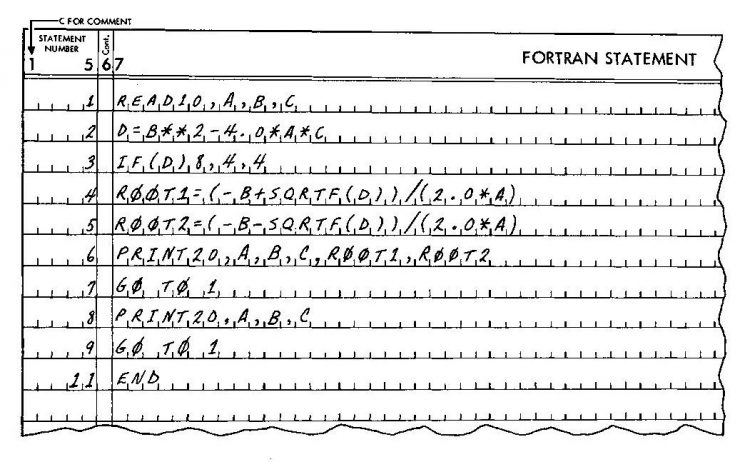 C FOR COMMENT
STATEMENT NUMBER Cont. FORTRAN STATEMENT
1 5 6 7
1 READ10,A,B,C
2 D=B**2-4.0*A*C
3 IF(D)8,4,4
4 RØØT1=(-B+SQRTF(D))/(2.0*A)
5 RØØT2=(-B-SQRTF(D))/(2.0*A)
6 PRINT20,A,B,C,RØØT1,RØØT2
7 GØ TØ 1
8 PRINT20,A,B,C
9 GØ TØ 1
11 END